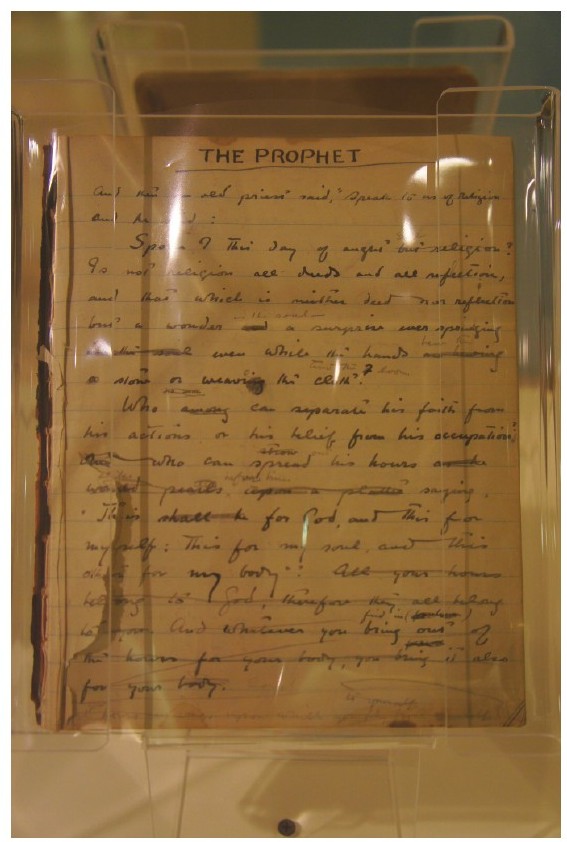 THE PROPHET
And then an old priest said, "Speak to us of religion
and he said :
Spoke I this day of aught but religion?
Is not religion all deeds and all reflection,
and that which is neither deed nor reflection
in the soul
but a wonder and a surprise ever springing
in the soul even while the hands
a stone or weaving the cloth?
Who among can separate his faith from
his actions, or his belief from his occupation?
Who can spread his hours
saying,
"This shall be for God, and this for
myself: This for my soul, and this
other for my body"? All your hours
belong to God, therefore they all belong
to you. And whatever you bring out of
the hours for your body, you bring it also
for your body.